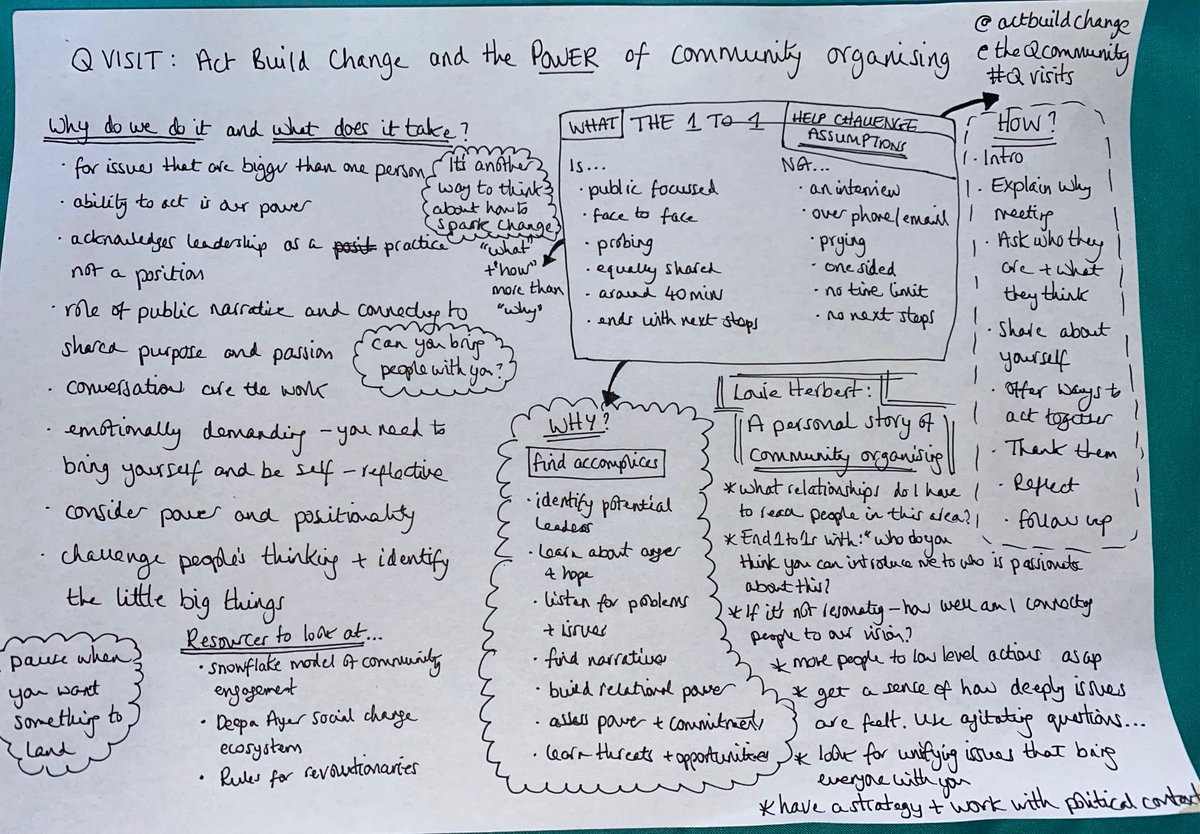 Q VISIT: Act Build Change and the POWER of community organising
@actbuildchange
@theQcommunity
#Qvisits
Why do we do it and what does it take?
· for issues that are bigger than one person
· ability to act is our power
· acknowledges leadership as a posit practice
not a position
· role of public narrative and connecting to
shared purpose and passion
· conversation are the work
· emotionally demanding - you need to
bring yourself and be self-reflective
· consider power and positionality
· challenge people's thinking + identify
the little big things
It's another
way to think
about how to
spark change
"what"
+ "how"
more than
"why"
can you bring
people with you?
pause when
you want
something to
land
Resources to look at...
· snowflake model of community
engagement
· Deepa Ayer social change
ecosystem
· Rules for revolutionaries
WHAT THE 1 TO 1
HELP CHALLENGE
ASSUMPTIONS
Is...
· public focussed
· face to face
· probing
· equally shared
· around 40 min
· ends with next steps
Not...
· an interview
· over phone/email
· prying
· one sided
· no time limit
· no next steps
How?
· Intro
· Explain why
meeting
· Ask who they
are + what
they think
· Share about
yourself
· Offer ways to
act together
· Thank them
· Reflect
· Follow up
WHY?
find accomplices
· identify potential
leaders
· learn about anger
+ hope
· listen for problems
+ issues
· find narratives
· build relational power
· assess power + commitment
· learn threats + opportunities
Herbert:
A personal story of
community organising
* what relationships do I have
to read people in this area?
* End 1 to 1s with: "who do you
think you can introduce me to who is passionate
about this?
* If it's not resonating - how well am I connecting
people to our vision?
* more people to low level actions asap
* get a sense of how deeply issues
are felt. Use agitating questions...
* look for unifying issues that bring
everyone with you
* have a strategy + work with political context